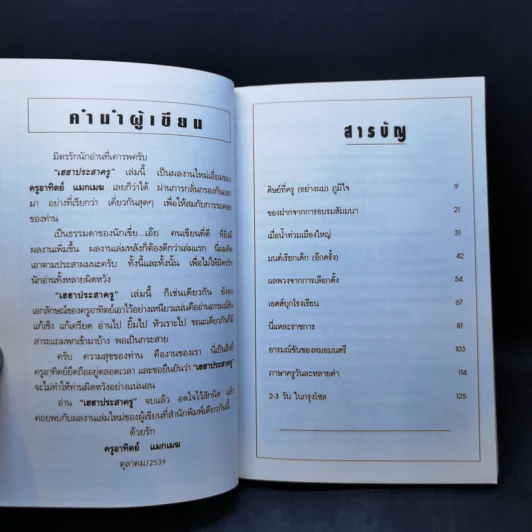 คำนำผู้เขียน
มิตรรักนักอ่านที่เคารพครับ
"เฮฮาประสาครู" เล่มนี้ เป็นผลงานใหม่เอี่ยมของ
ครูอาทิตย์ แมกเมฆ เลยก็ว่าได้ ผ่านการกลั่นกรองกันออก
มา อย่างที่เรียกว่า เคี่ยวกันสุดๆ เพื่อให้สมกับการรอคอย
ของท่าน
เป็นธรรมดาของนักเขี่ย...เอ๊ย คนเขียนที่ดี ที่ยิ่งมี
ผลงานเพิ่มขึ้น ผลงานเล่มหลังก็ต้องดีกว่าเล่มแรก นี่ผมคิด
เอาตามประสาผมนะครับ ทั้งนี้และทั้งนั้น เพื่อไม่ให้มิตรรัก
นักอ่านทั้งหลายผิดหวัง
"เฮฮาประสาครู" เล่มนี้ ก็เช่นเดียวกัน ยังคง
เอกลักษณ์ของครูอาทิตย์เอาไว้อย่างเหนียวแน่นคืออ่านอารมณ์ขัน
แก้เซ็ง แก้เครียด อ่านไป ยิ้มไป หัวเราะไป ขณะเดียวกันก็มี
สาระแถมพกเข้ามาบ้าง พอเป็นกระสาย
ครับ ความสุขของท่าน คืองานของเรา นี่เป็นสิ่งที่
ครูอาทิตย์ยึดถืออยู่ตลอดเวลา และขอยืนยันว่า "เฮฮาประสาครู"
จะไม่ทำให้ท่านผิดหวังอย่างแน่นอน
อ่าน "เฮฮาประสาครู" จบแล้ว อดใจไว้สักนิด แล้ว
คอยพบกับผลงานเล่มใหม่ของผู้เขียนที่สำนักพิมพ์เดียวกันนี้
ด้วยรัก
ครูอาทิตย์ แมกเมฆ
ตุลาคม/2539
สารบัญ
ศิษย์ที่ครู (อย่างผม) ภูมิใจ 9
ของฝากจากการอบรมสัมมนา 21
เมื่อน้ำท่วมเมืองใหญ่ 31
มนต์เรียกเด็ก (อีกครั้ง) 42
ผลพวงจากการเลือกตั้ง 54
เอดส์บุกโรงเรียน 67
นี่แหละราชการ 81
อารมณ์ขันของหมอมนตรี 103
ภาษาครูวันละหลายคำ 114
2-3 วัน ในกรุงโซล 125